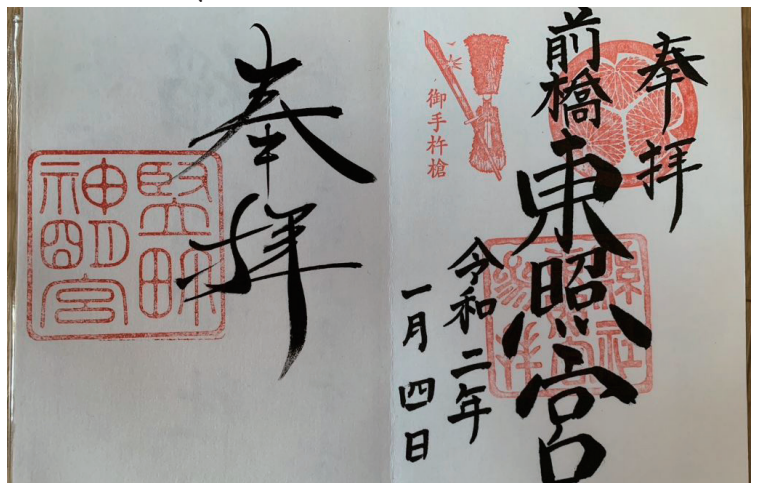 奉拝
前橋東照宮
御手杵槍
令和二年
一月四日
奉拝
神明宮